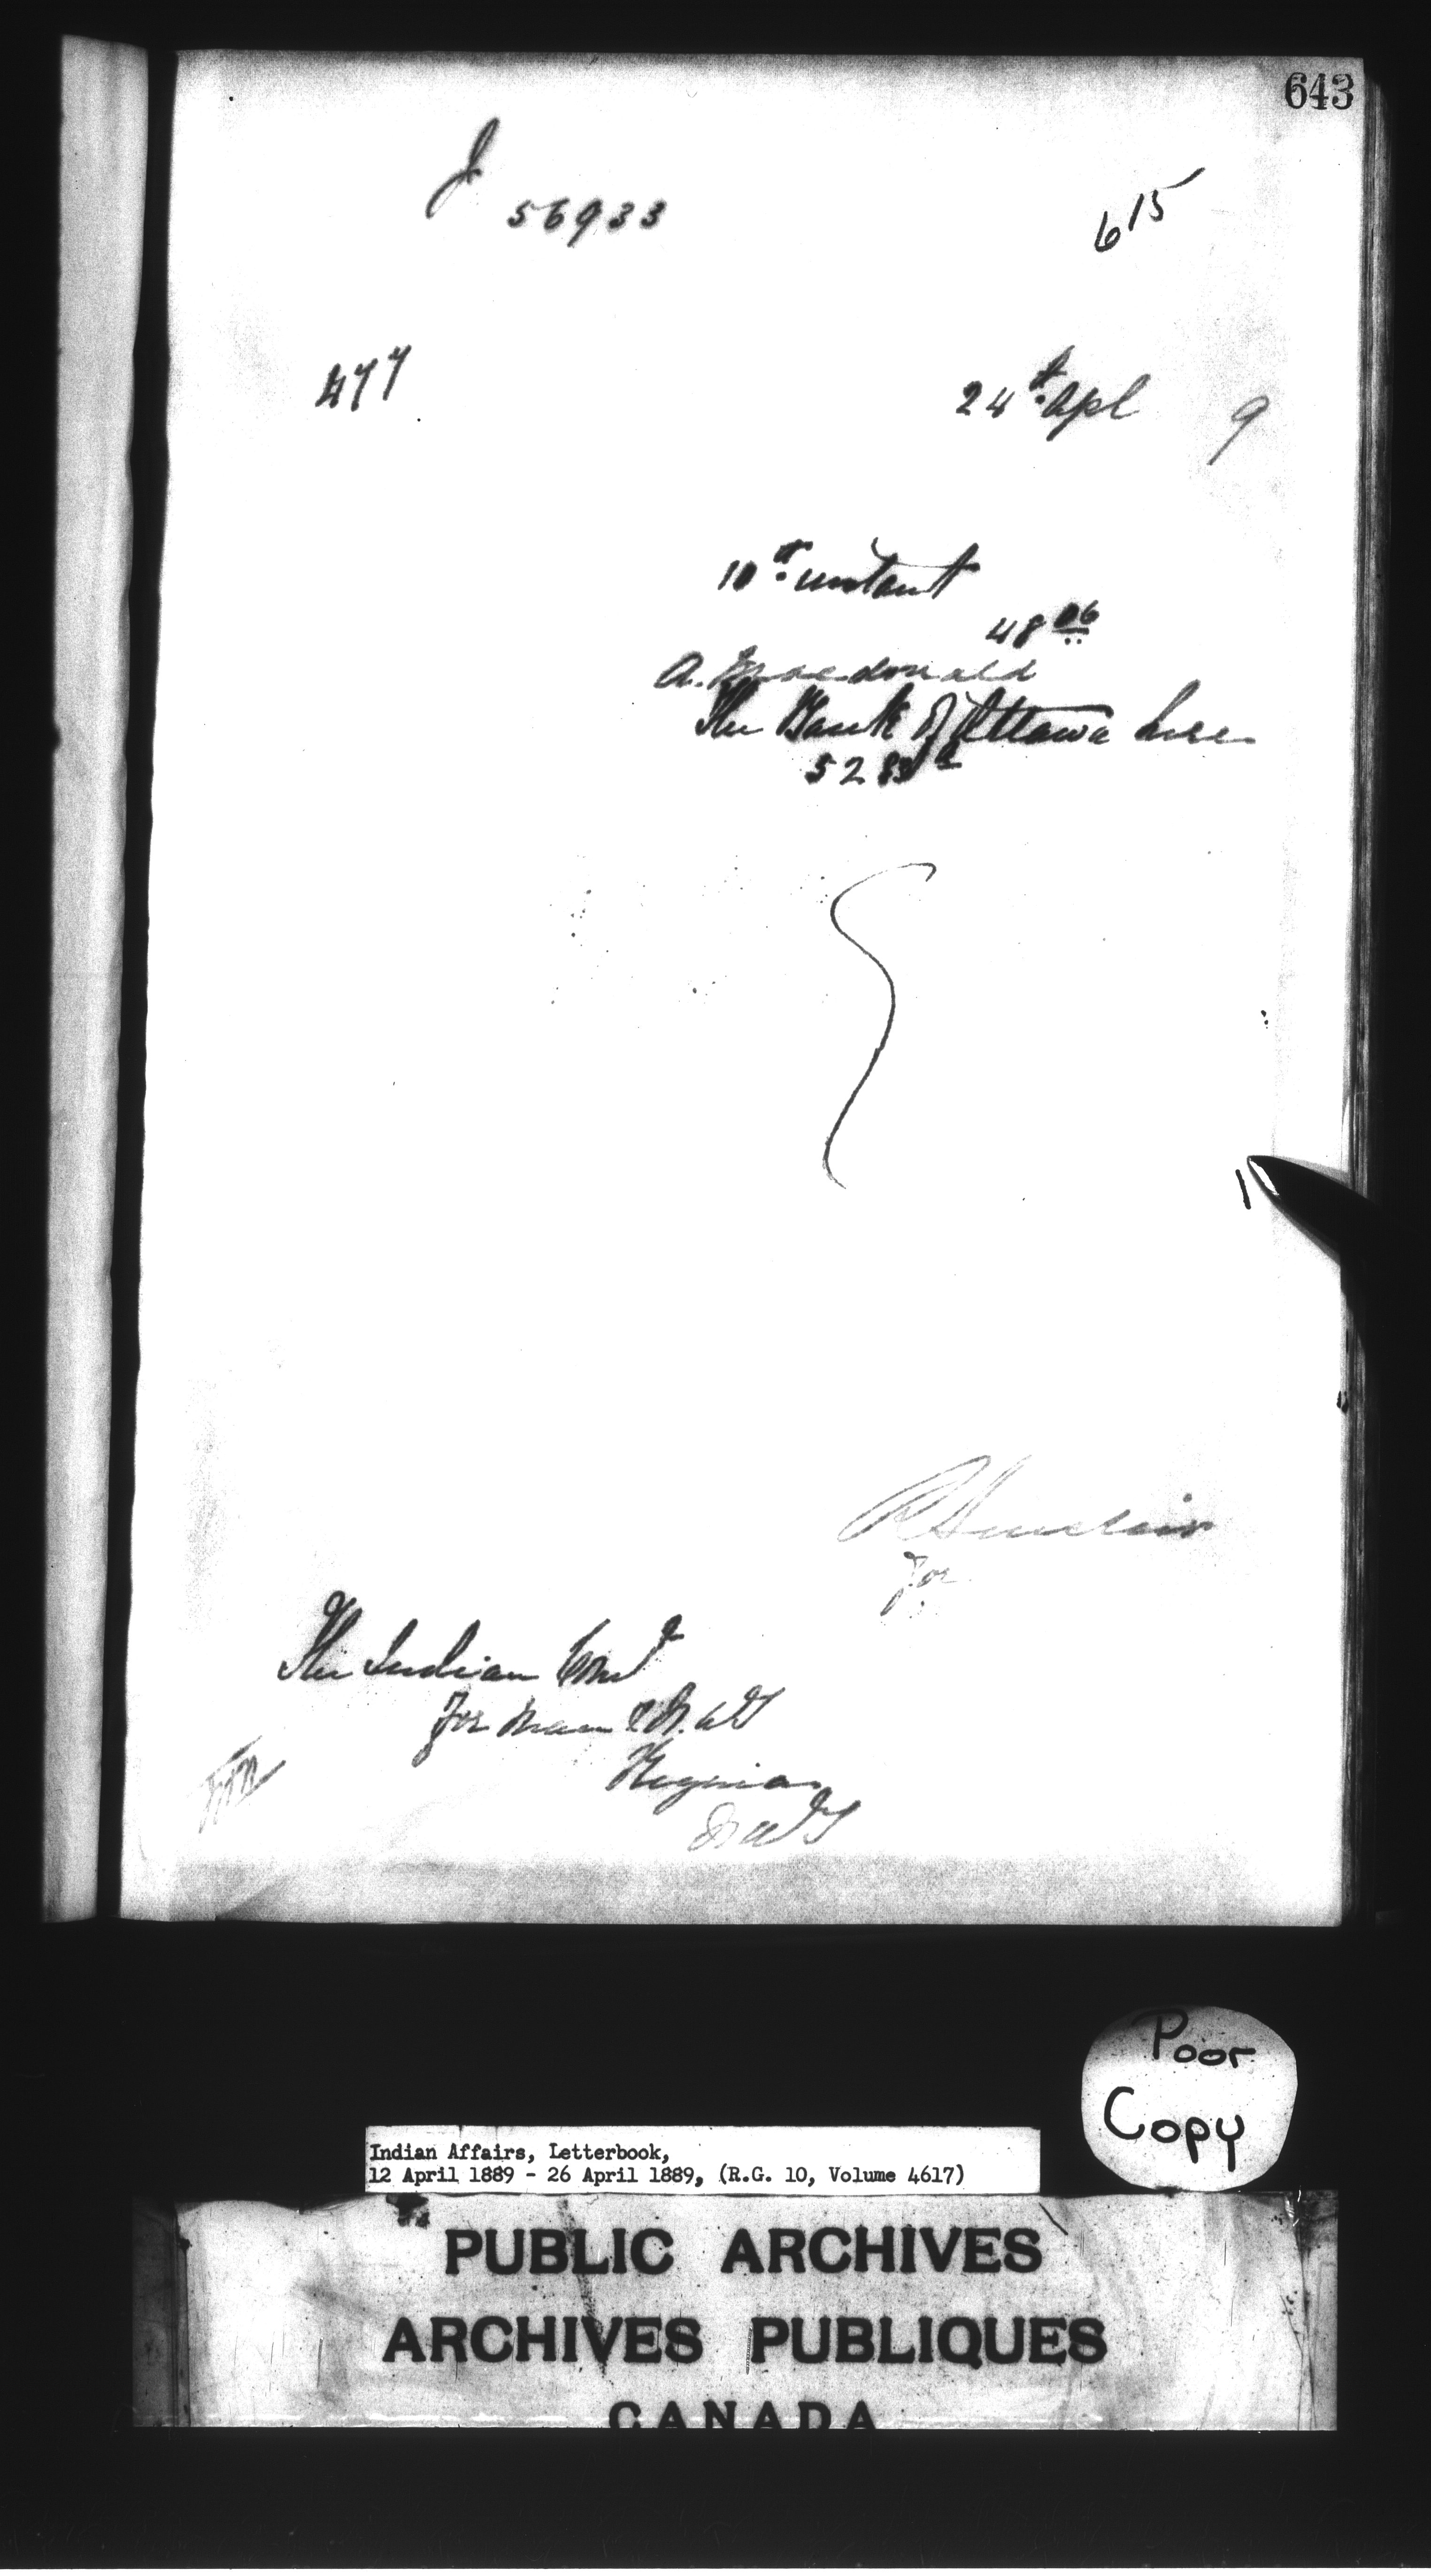 643
56933
615
477
24th Apl 9
10th instant
48 06
A. Macdonald
The Bank of Ottawa here
52
R Sinclair
for
The Indian Comr
for Man & N.W.T
Regina
N W T
Poor
Copy
Indian Affairs, Letterbook,
12 April 1889 - 26 April 1889, (R.G. 10, Volume 4617)
PUBLIC ARCHIVES
ARCHIVES PUBLIQUES
CANADA